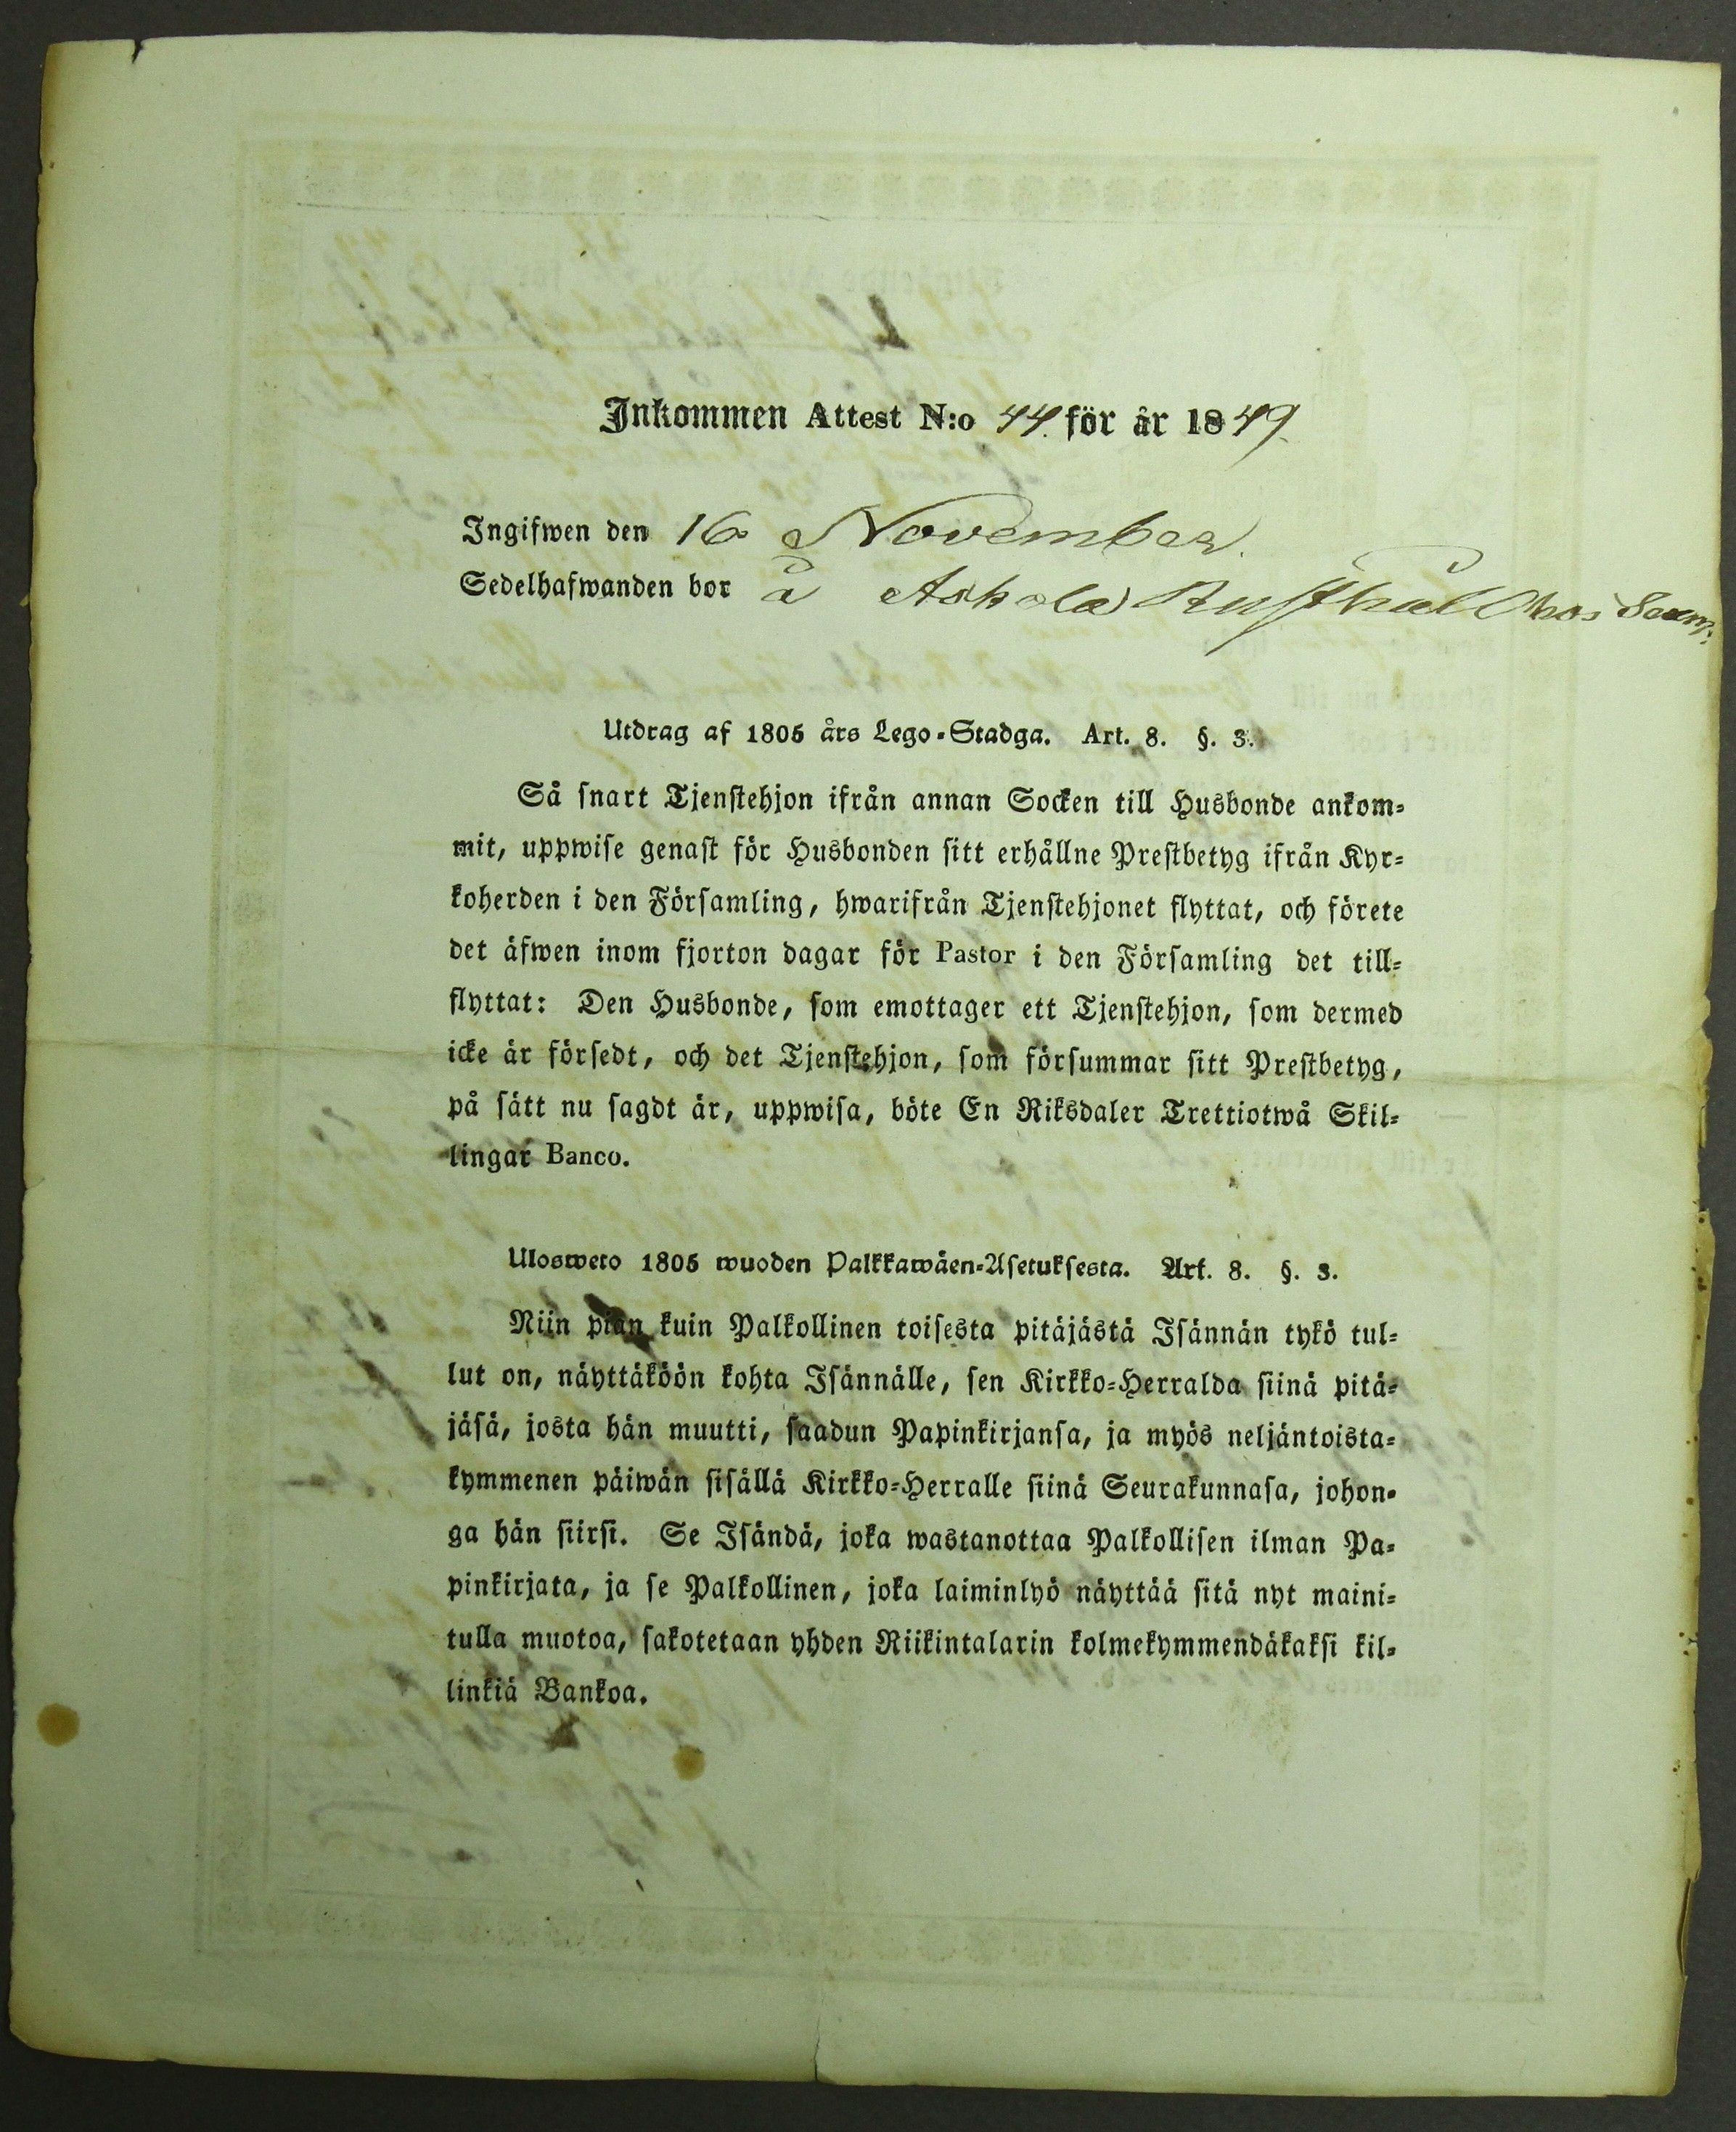 Inkommen Attest N:o 44. för år 1849.
Ingifwen den 16 November.
Sedelhafwanden bor å Askola Rusthåll hos
Utdrag af 1805 års Lego-Stadga. Art. 8. §. 3.
Så snart Tjenstehjon ifrån annan Socken till Husbonde ankom-
mit, uppwise genast för Husbonden sitt erhållne Prestbetyg ifrån Kyr-
koherden i den Församling, hwarifrån Tjenstehjonet flyttat, och förete
det äfwen inom fjorton dagar för Pastor i den Församling det till-
flyttat: Den Husbonde, som emottager ett Tjenstehjon, som dermed
icke är försedt, och det Tjenstehjon, som försummar sitt Prestbetyg,
på sätt nu sagdt är, uppwisa, böte En Riksdaler Trettiotwå Skil-
lingar Banco.
Ulosweto 1805 wuoden Palkkawäen-Asetuksesta. Art. 8. §. 3.
Niin pian kuin Palkollinen toisesta pitäjästä Isännän tykö tul-
lut on, näyttäköön kohta Isännälle, sen Kirkko-Herralda siinä pitä-
jäsä, josta hän muutti, saadun Papinkirjansa, ja myös neljäntoista-
kymmenen päiwän sisällä Kirkko-Herralle siinä Seurakunnasa, johon-
ga hän siirsi. Se Isändä, joka wastanottaa Palkollisen ilman Pa-
pinkirjata, ja se Palkollinen, joka laiminlyö näyttää sitä nyt maini-
tulla muotoa, sakotetaan yhden Riikintalarin kolmekymmendäkaksi kil-
linkiä Bankoa.